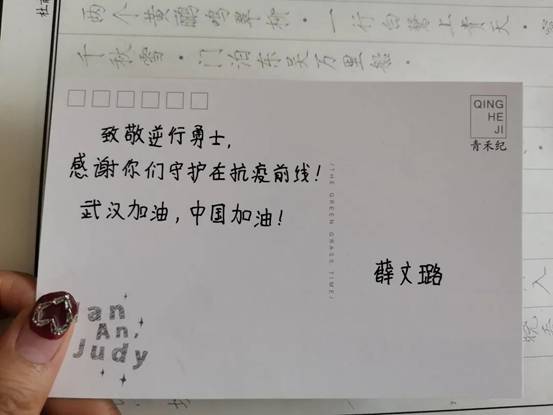 两个黄鹂鸣翠柳·一行白鹭上青天·
千秋雪·门泊东吴万里船·
QING
HE
JI
青禾纪
致敬逆行勇士,
感谢你们守护在抗疫前线!
武汉加油,中国加油!
/THE GREEN GRASS TIME/
薛文璐
an
An,
Judy
入